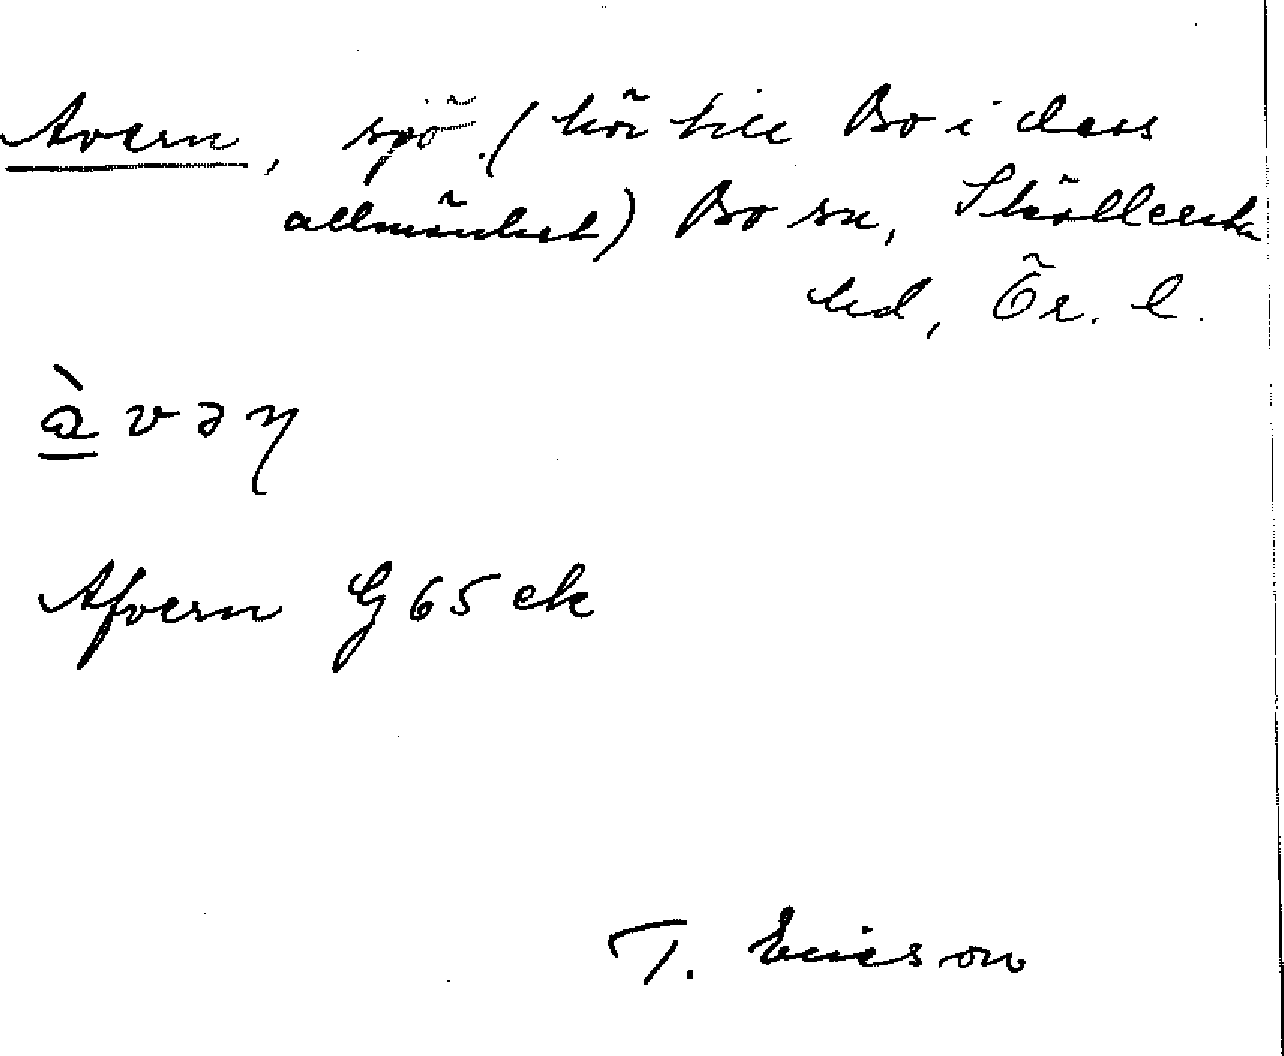 Avern, sjö (hör till Bo i dess
allmänhet) Bo sn, Sköllersta
hd, Ör. l.
à v ə n
Afvern G 65 ek
T. Ericson